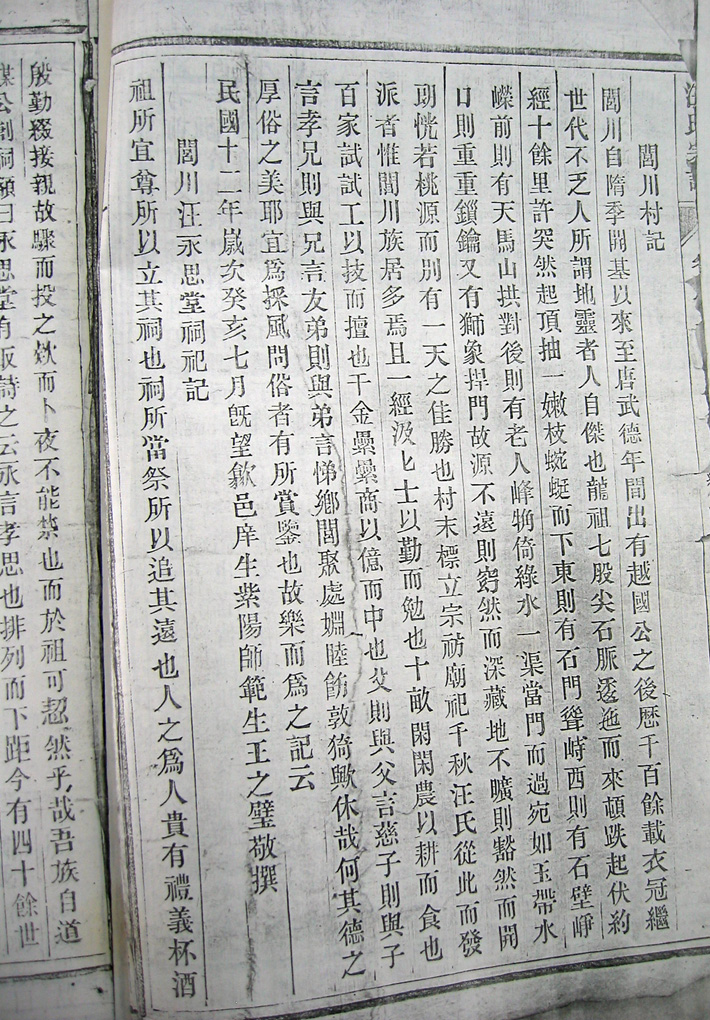 汪氏家譜
閭川村記
閭川自隋季開基以來至唐武德年間出有越國公之後歷千百餘載衣冠繼
世代不乏人所謂地靈者人自傑也龍祖七股尖石脈透迤而來頓跌起伏約
經十餘里許突然起頂抽一嫩枝蜿蜒而下東則有石門聳峙西則有石壁崢
嶸前則有天馬山拱對後則有老人峰特倚綠水一渠當門而過宛如玉帶水
口則重重鎖鑰又有獅象捍門故源不遠則窈然而深藏地不曠則豁然而開
朗恍若桃源而別有一天之佳勝也村末標立宗祊廟祀千秋汪氏從此而發
派者惟閭川族居多焉且一經汲匕士以勤而勉也十畝閑閑農以耕而食也
百家試試工以技而擅也千金纍纍商以億而中也父則與父言慈子則與子
言孝兄則與兄言友弟則與弟言悌鄉閭聚處婣睦飭敦猗歟休哉何其德之
厚俗之美耶宜爲採風問俗者有所賞鑒也故樂而爲之記云
民國十二年嵗次癸亥七月既望歙邑庠生紫陽師範生王之璧敬撰
閭川汪永思堂祠祀記
祖所宜尊所以立其祠也祠所當祭所以追其遠也人之爲人貴有禮義杯酒
殷勤綴接親故驟而投之欸而卜夜不能禁也而於祖可恝然乎哉吾族自道
謀公創祠額曰永思堂有取詩之云永言孝思也排列而下距今有四十餘世